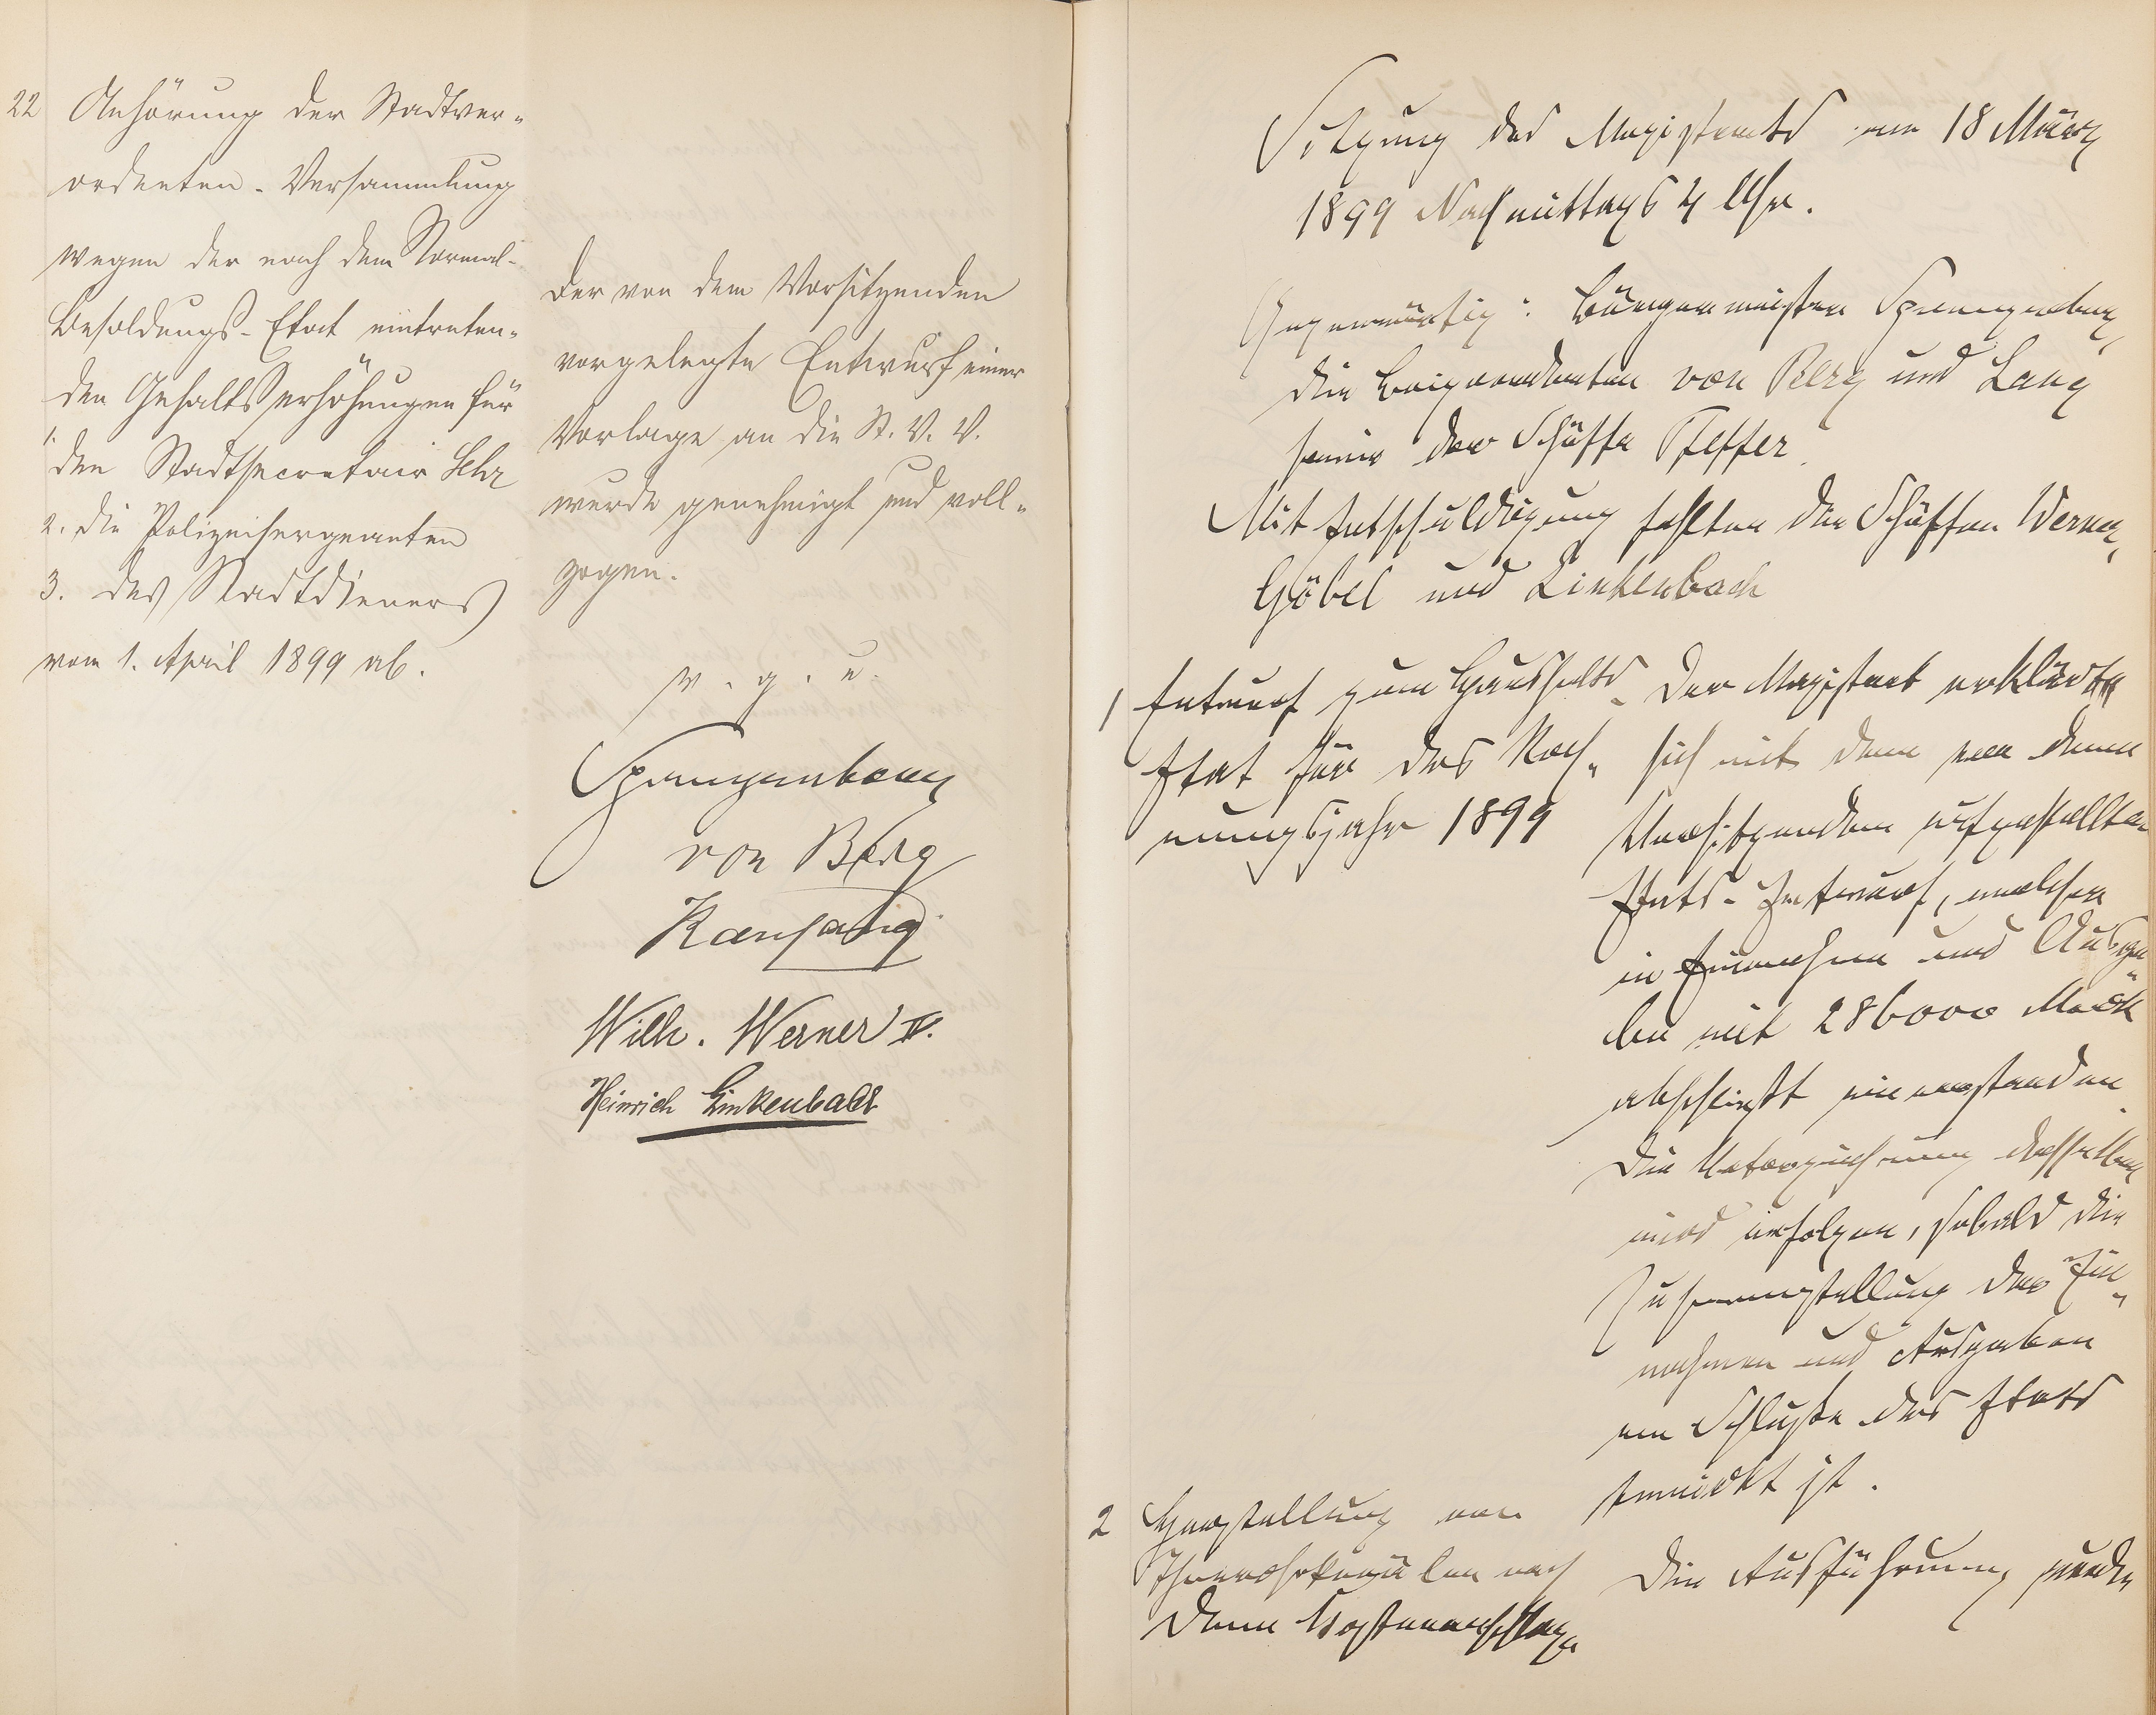 22 Anhörung der Stadtver-
ordneten-Versammlung
wegen der nach dem Normal-
Besoldungs-Etat eintreten-
den Gehaltserhöhungen für
1. den Stadtsecretair Lehr
2. die Polizeisergeanten
3. des Stadtdieners
vom 1. April 1899 ab.
Der von dem Vorsitzenden
vorgelegte Entwurf einer
Vorlage an die St. V. V.
wurde genehmigt und voll-
zogen.
v. g. u.
Spangenberg
von Berg
Wilh. Werner IV.
Heinrich Linkenbach
Sitzung des Magistrats am 18 März
1899 Nachmittags 4 Uhr.
Gegenwärtig: Bürgermeister Spangenberg,
die Beigeordneten von Berg und Lang
sowie der Schöffe Pfeffer.
Mit Entschuldigung fehlten die Schöffen Werner,
Göbel und Linkenbach
1 Entwurf zum Haushalts-
Etat für das Rech-
nungsjahr 1899
Der Magistrat erklärte
sich mit dem von dem
Vorsitzenden aufgestellten
Etats-Entwurf, welcher
in Einnahme und Ausga-
be mit 286000 Mark
abschließt einverstanden.
Die Unterzeichnung desselben
wird erfolgen, sobald die
Zusammenstellung der Ein-
nahmen und Ausgaben
am Schluße des Etats
bewirkt ist.
2 Herstellung von
nach
dem Kostenanschlage
Die Ausführung wurde